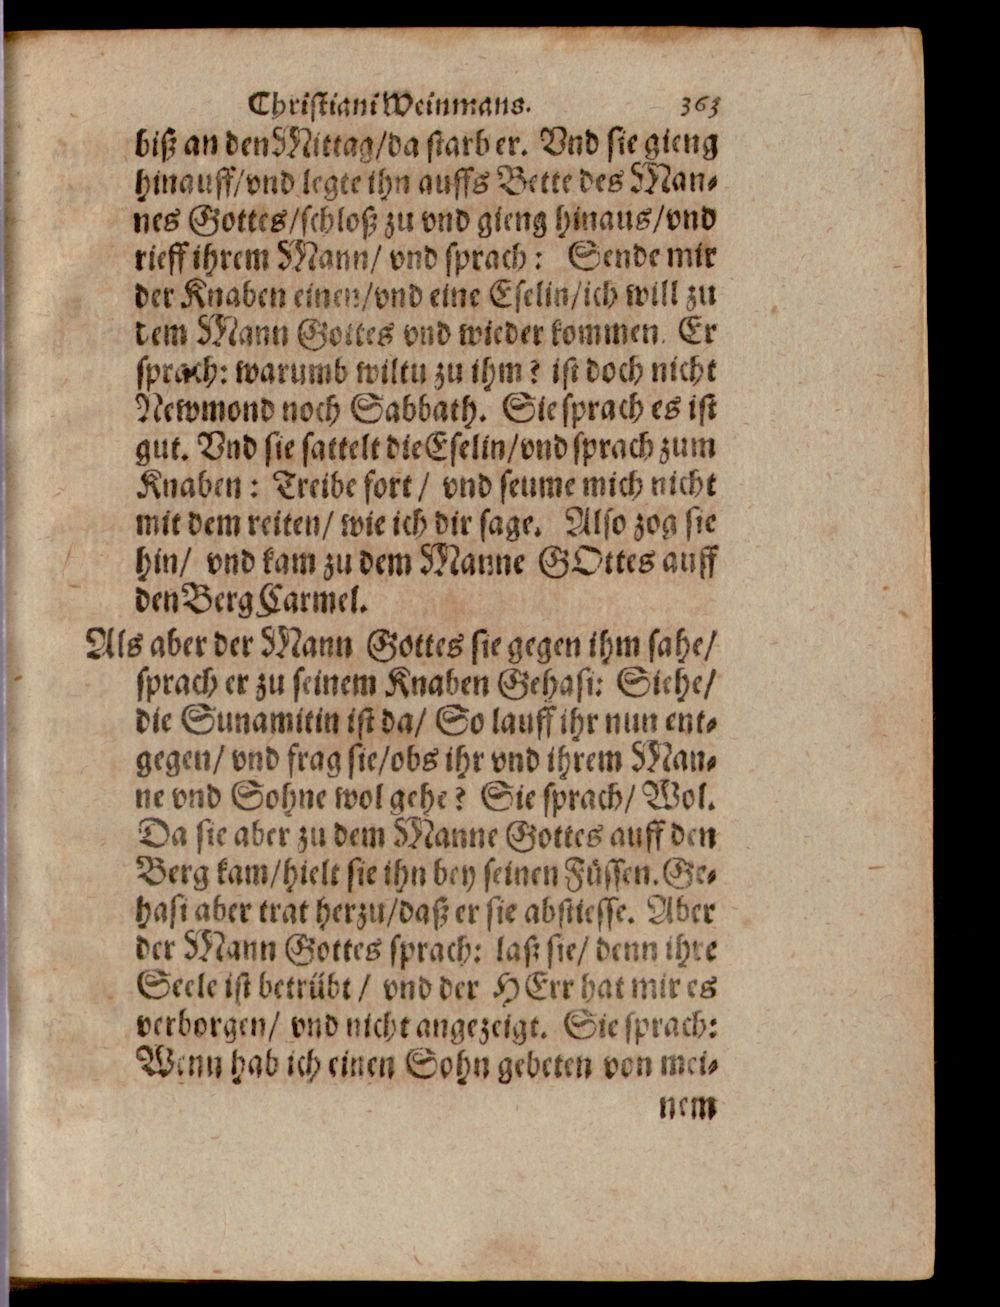 Christiani Weinmans. 363
biß an den Mittag/da starb er. Vnd sie gieng
hinauff/vnd legte ihn auffs Bette des Man-
nes Gottes/schloß zu vnd gieng hinaus/vnd
rieff ihrem Mann/ vnd sprach: Sende mir
der Knaben einen/vnd eine Eselin/ich will zu
dem Mann Gottes vnd wieder kommen. Er
sprach: warumb wiltu zu ihm? ist doch nicht
Newmond noch Sabbath. Sie sprach es ist
gut. Vnd sie sattelt die Eselin/vnd sprach zum
Knaben: Treibe fort/ vnd seume mich nicht
mit dem reiten/ wie ich dir sage. Also zog sie
hin/ vnd kam zu dem Manne GOttes auff
den Berg Carmel.
Als aber der Mann Gottes sie gegen ihm sahe/
sprach er zu seinem Knaben Gehasi: Siehe/
die Sunamitin ist da/ So lauff ihr nun ent-
gegen/ vnd frag sie/obs ihr vnd ihrem Man-
ne vnd Sohne wol gehe? Sie sprach/ Wol.
Da sie aber zu dem Manne Gottes auff den
Berg kam/hielt sie ihn bey seinen Füssen. Ge-
hasi aber trat herzu/daß er sie abstiesse. Aber
der Mann Gottes sprach: laß sie/ denn ihre
Seele ist betrübt/ vnd der HErr hat mir es
verborgen/ vnd nicht angezeigt. Sie sprach:
Wenn hab ich einen Sohn gebeten von mei-
nem